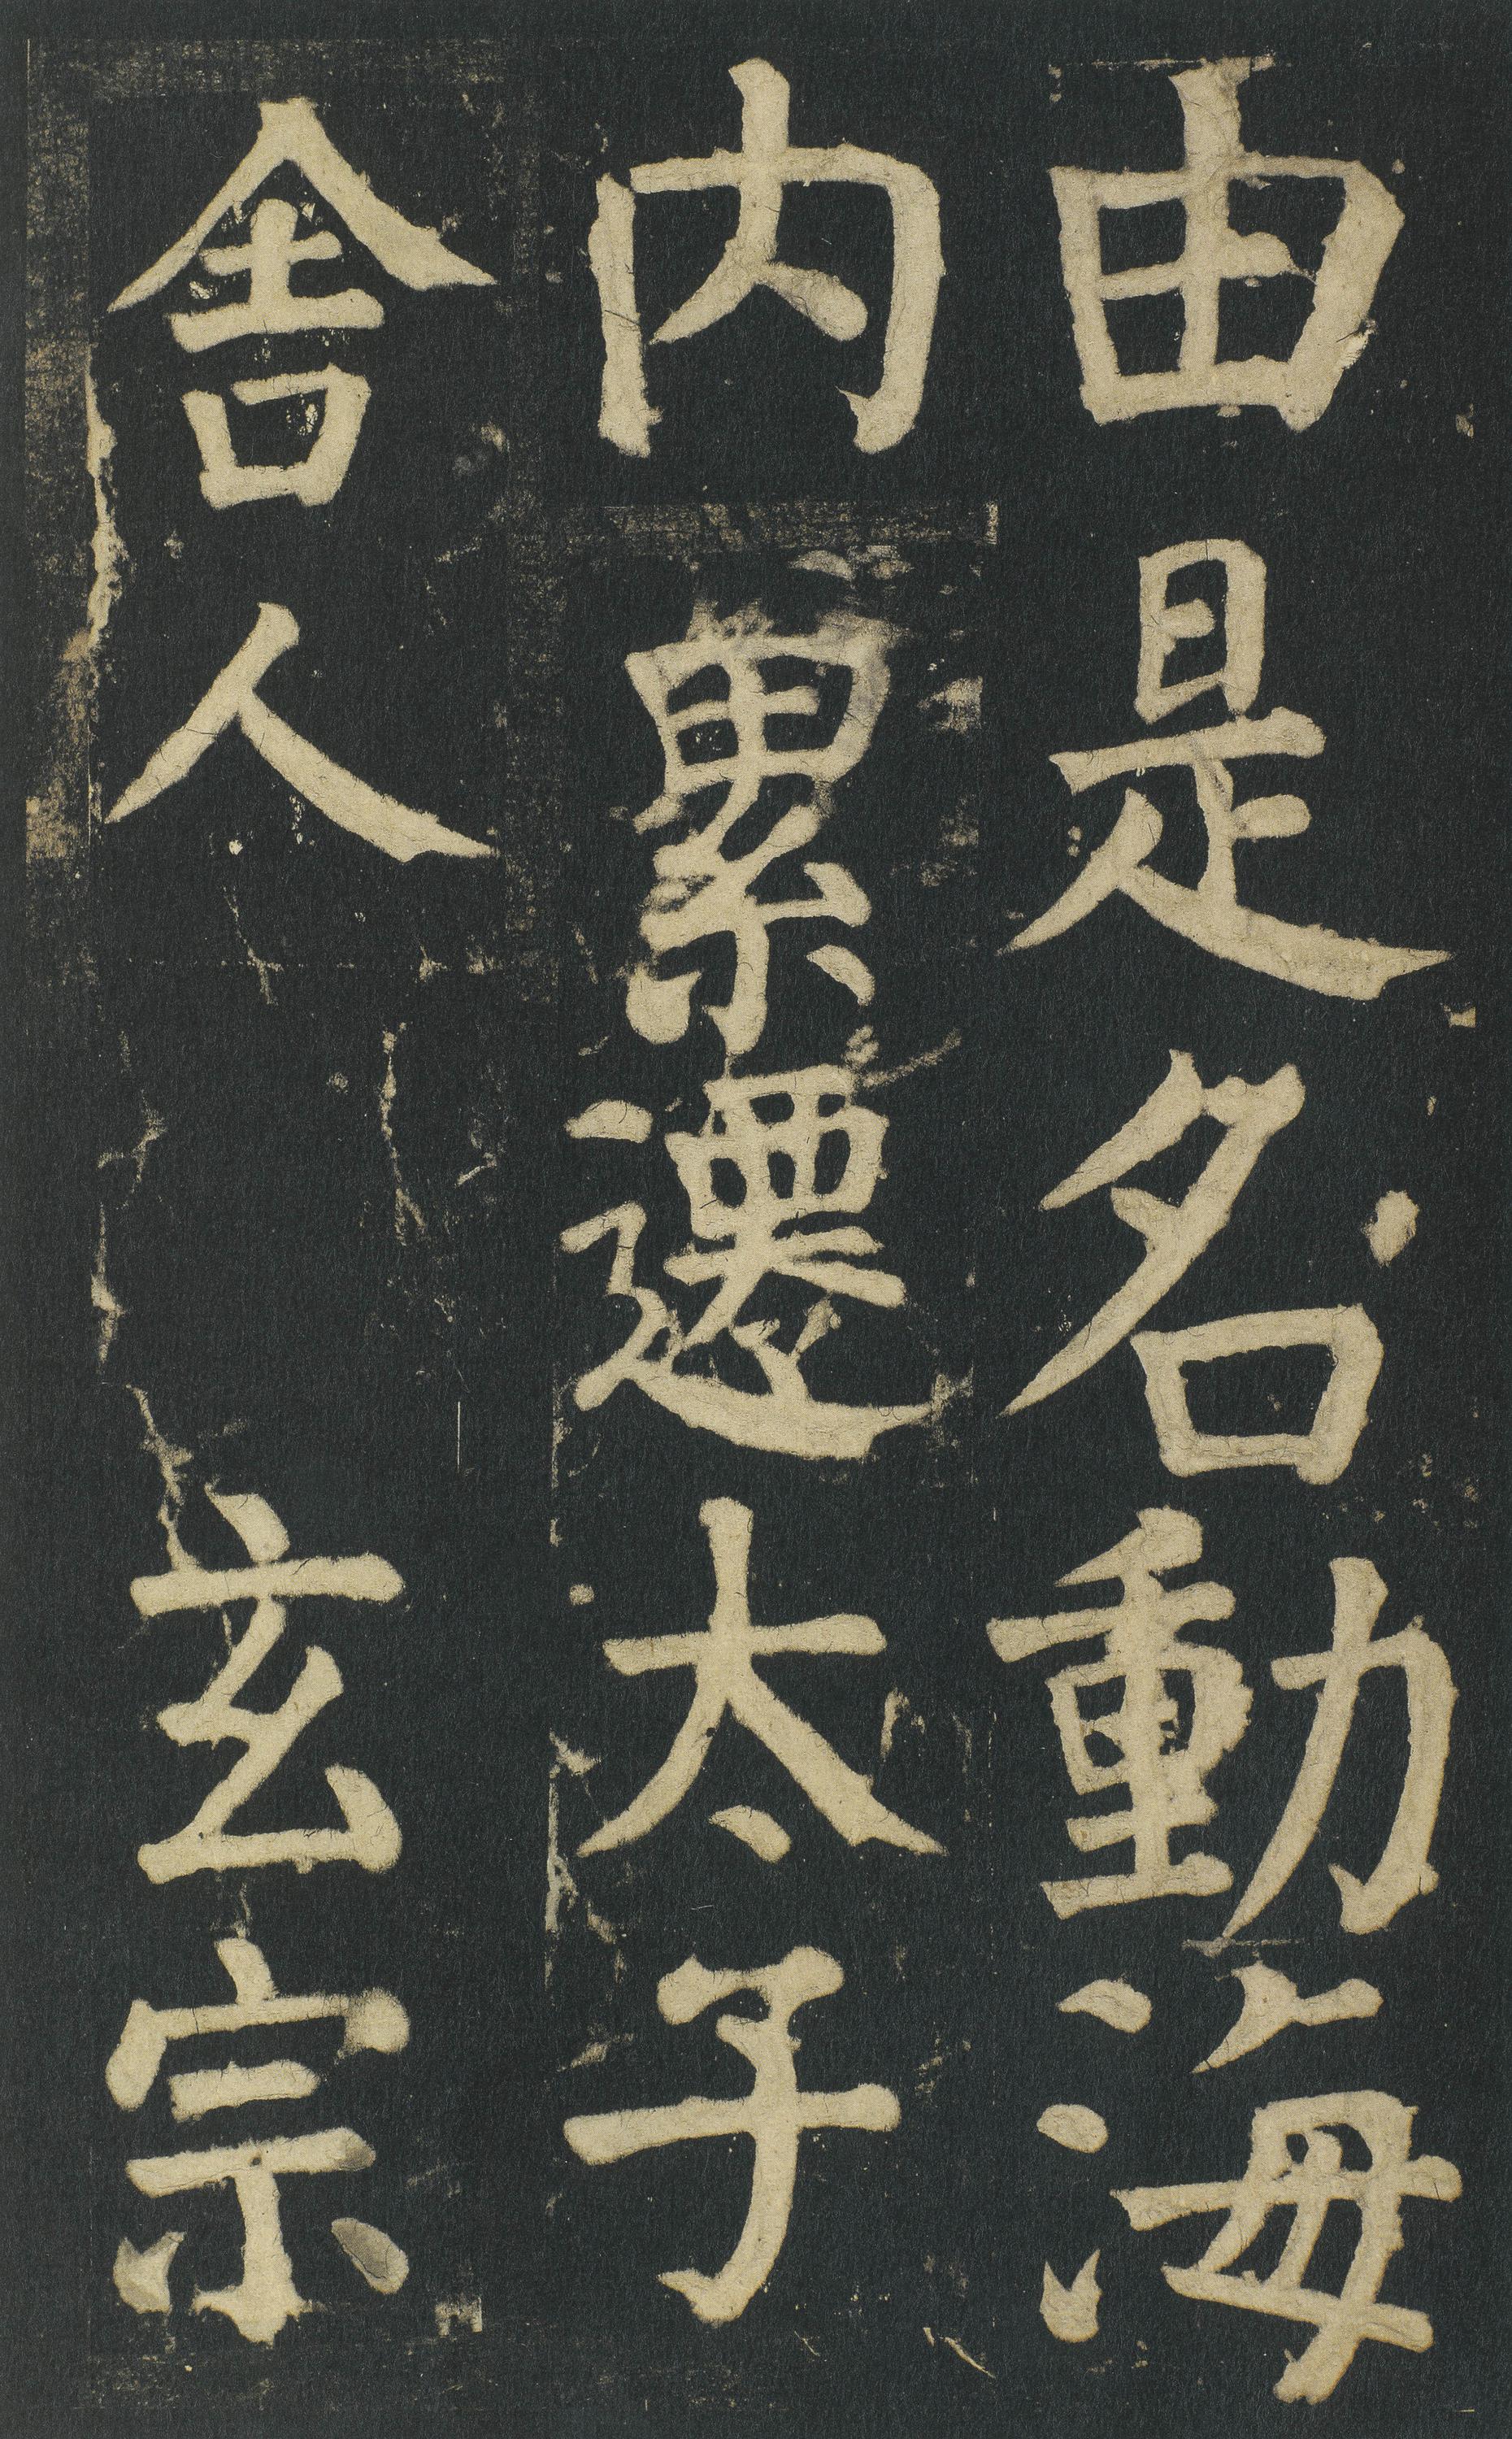 由是名動海
内累遷太子
舍人　玄宗